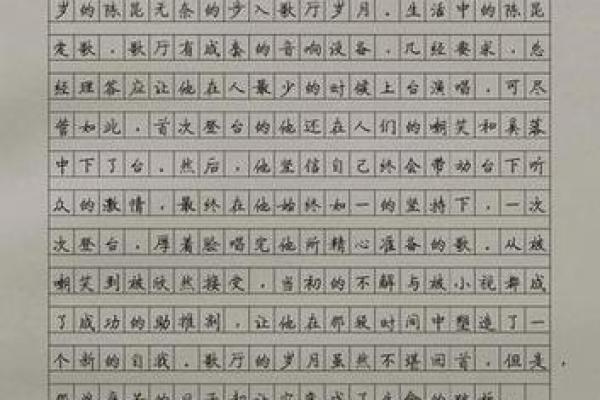 岁的陈昆无奈的步入歌厅岁月。生活中的陈昆
歌,歌厅有成套的音响设备,几经要求,总
经理答应让他在人最少的时候上台演唱,可尽
管如此,首次登台的他还在人们的嘲笑和奚落
中下了台。然后,他坚信自己终会带动台下听
众的激情,最终在他始终如一的坚持下,一次
次登台,厚着脸唱完他所精心准备的歌。从被
嘲笑到被欣然接受,当初的不解与被小视都成
了成功的助推剂,让他在那段时间中塑造了一
个新的自我。歌厅的岁月虽然不堪回首,但是,